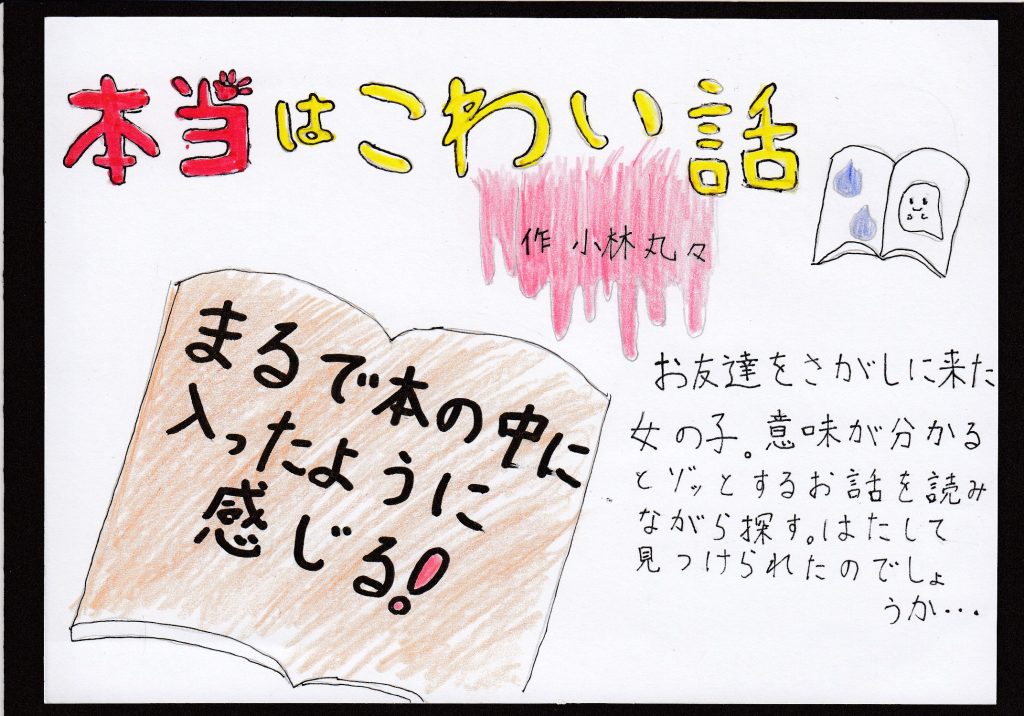 本当はこわい話
作 小林丸々
まるで本の中に
入ったように
感じる!
お友達をさがしに来た
女の子。意味が分かる
とゾッとするお話を読み
ながら探す。はたして
見つけられたのでしょ
うか・・・